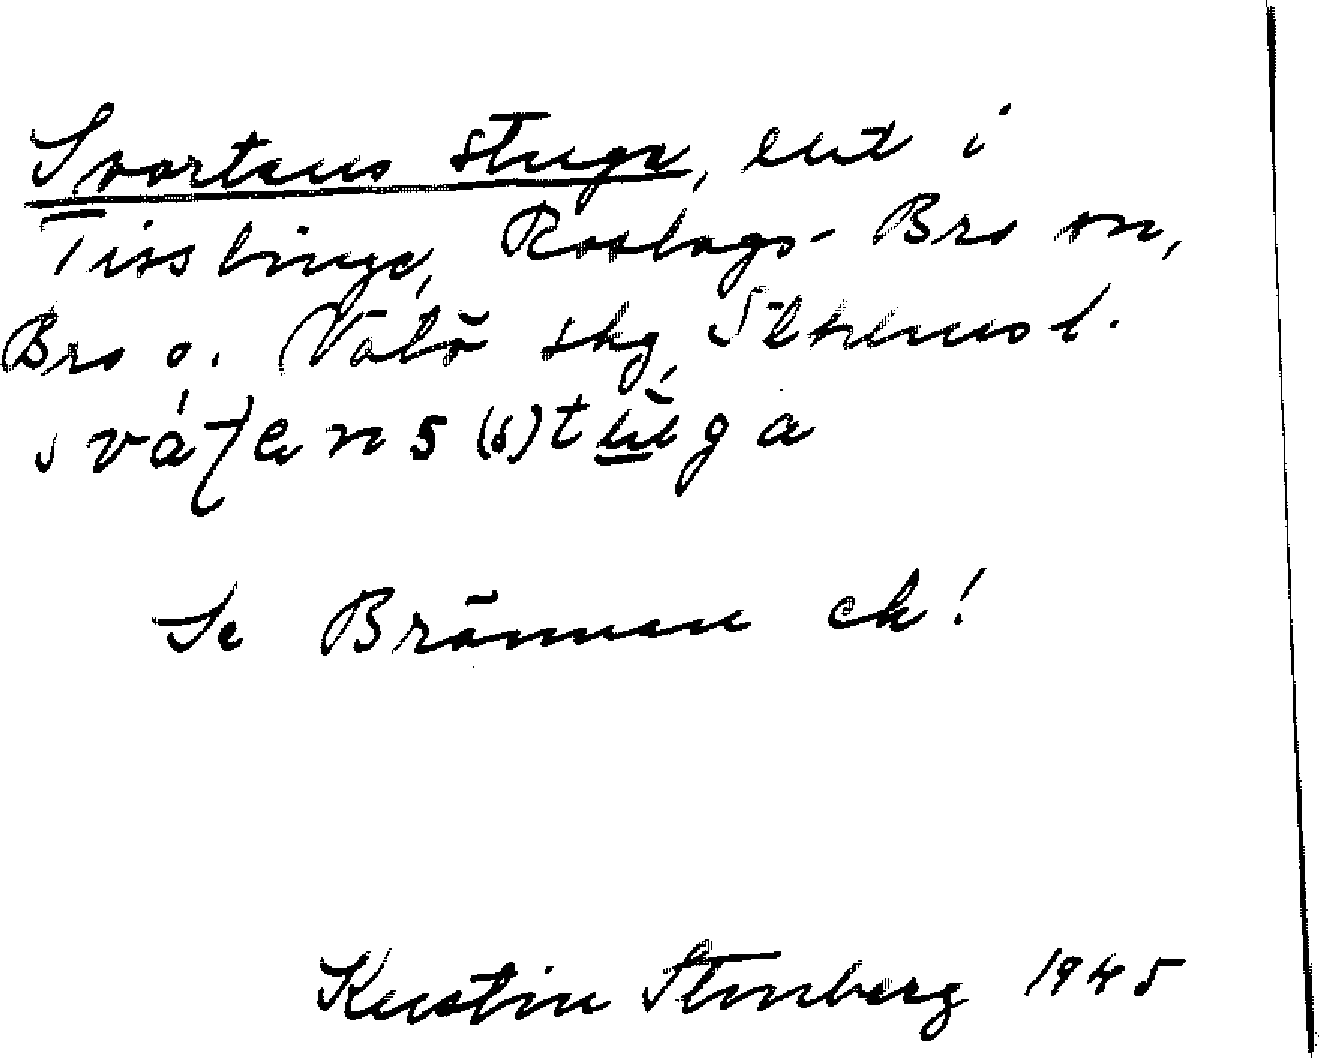 Svartens stuga, ent i
Tisslinge, Roslags-Bro sn,
Bro o. Vätö skg, Sthlms l.
Se Brännan ek!
Kerstin Stenberg 1945